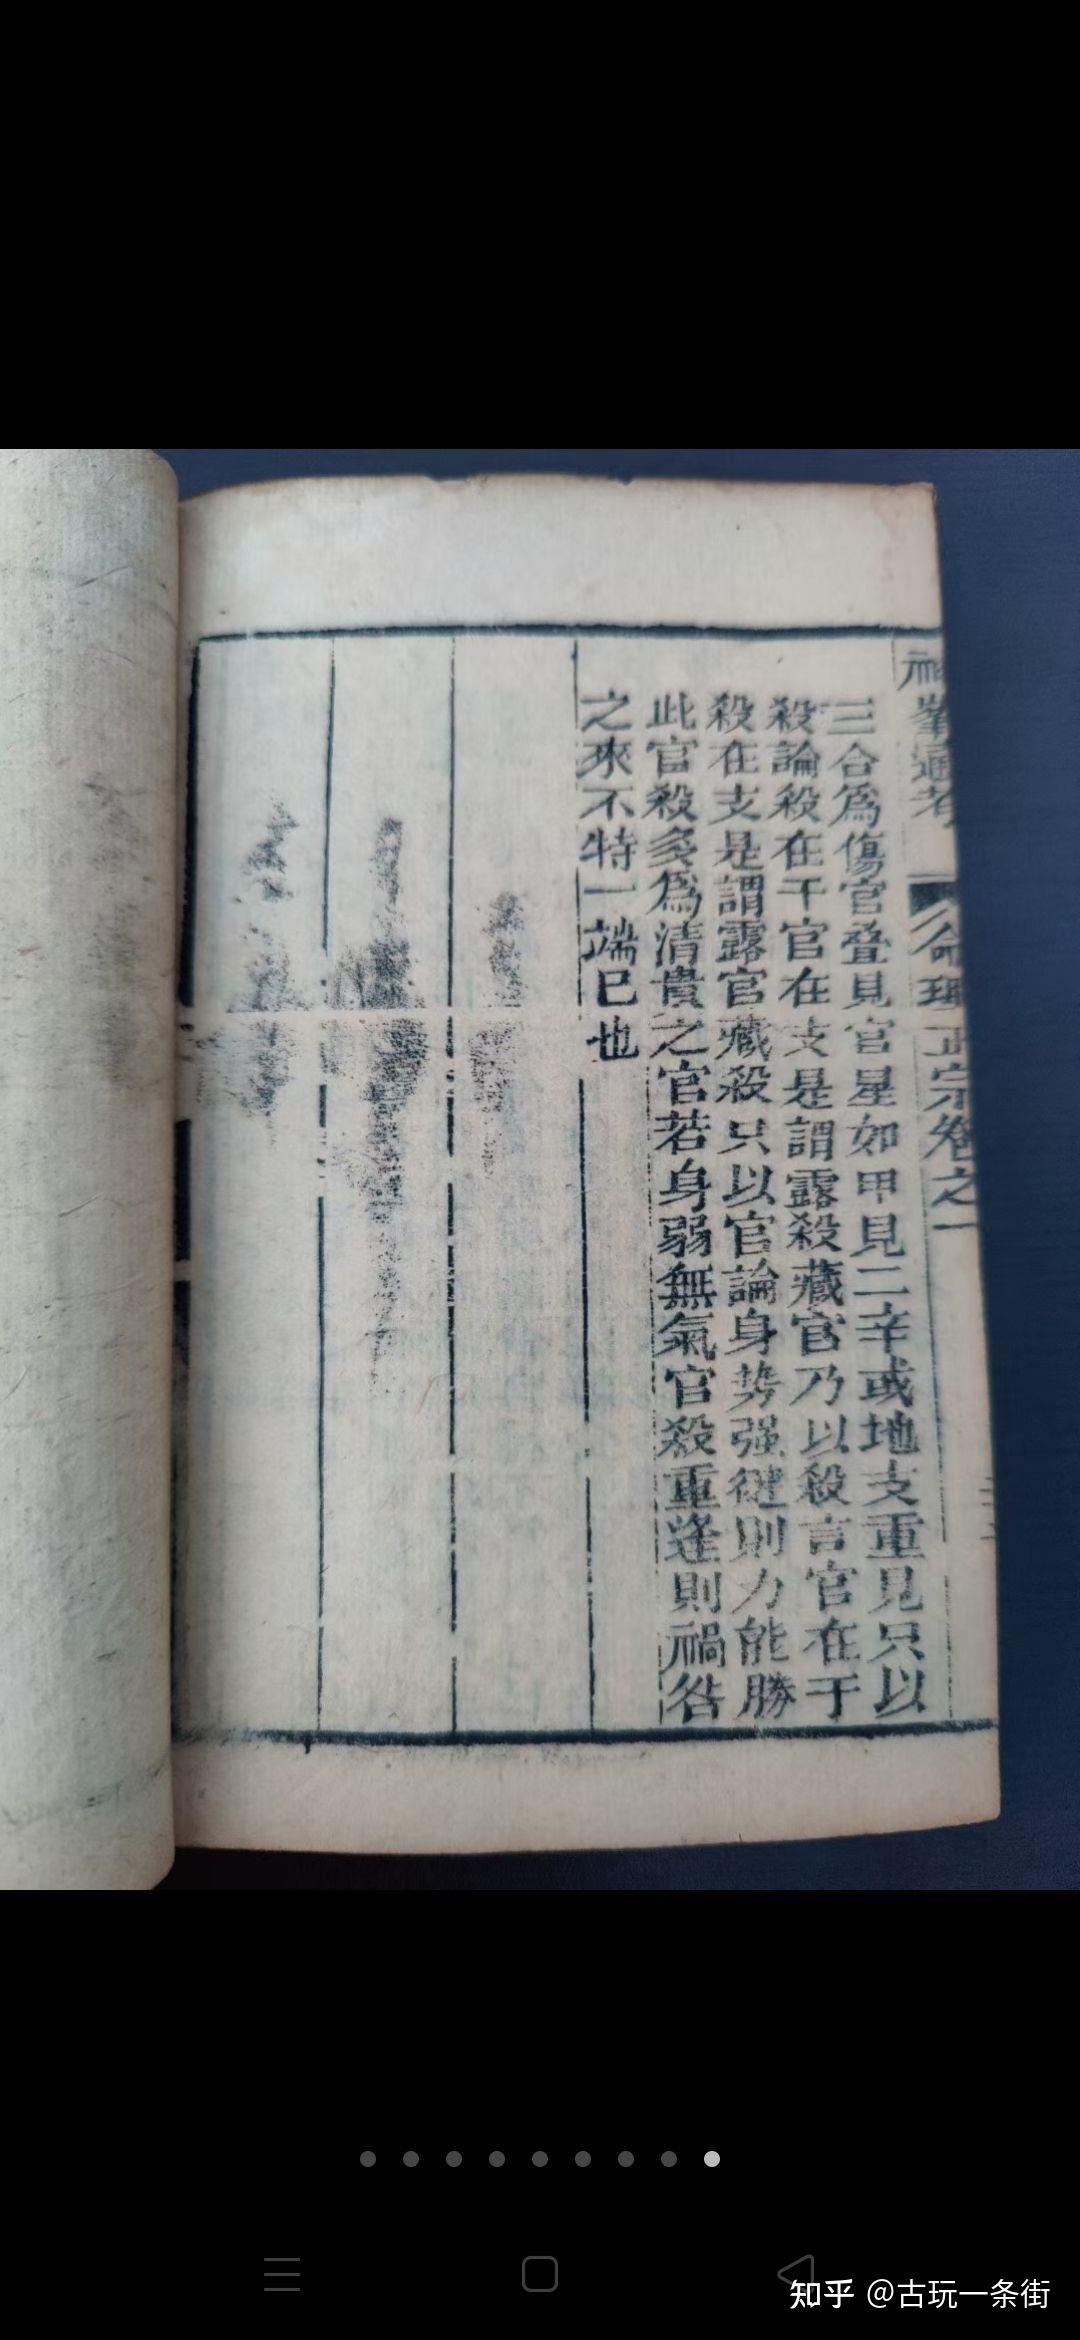 神峯通考 命理正宗卷之一
三合爲傷官叠見官星如甲見二辛或地支重見只以
殺論殺在干官在支是謂露殺藏官乃以殺言官在于
殺在支是謂露官藏殺只以官論身勢强健則力能勝
此官殺多爲清貴之官若身弱無氣官殺重逢則禍咎
之來不特一端已也
知乎 @古玩一条街